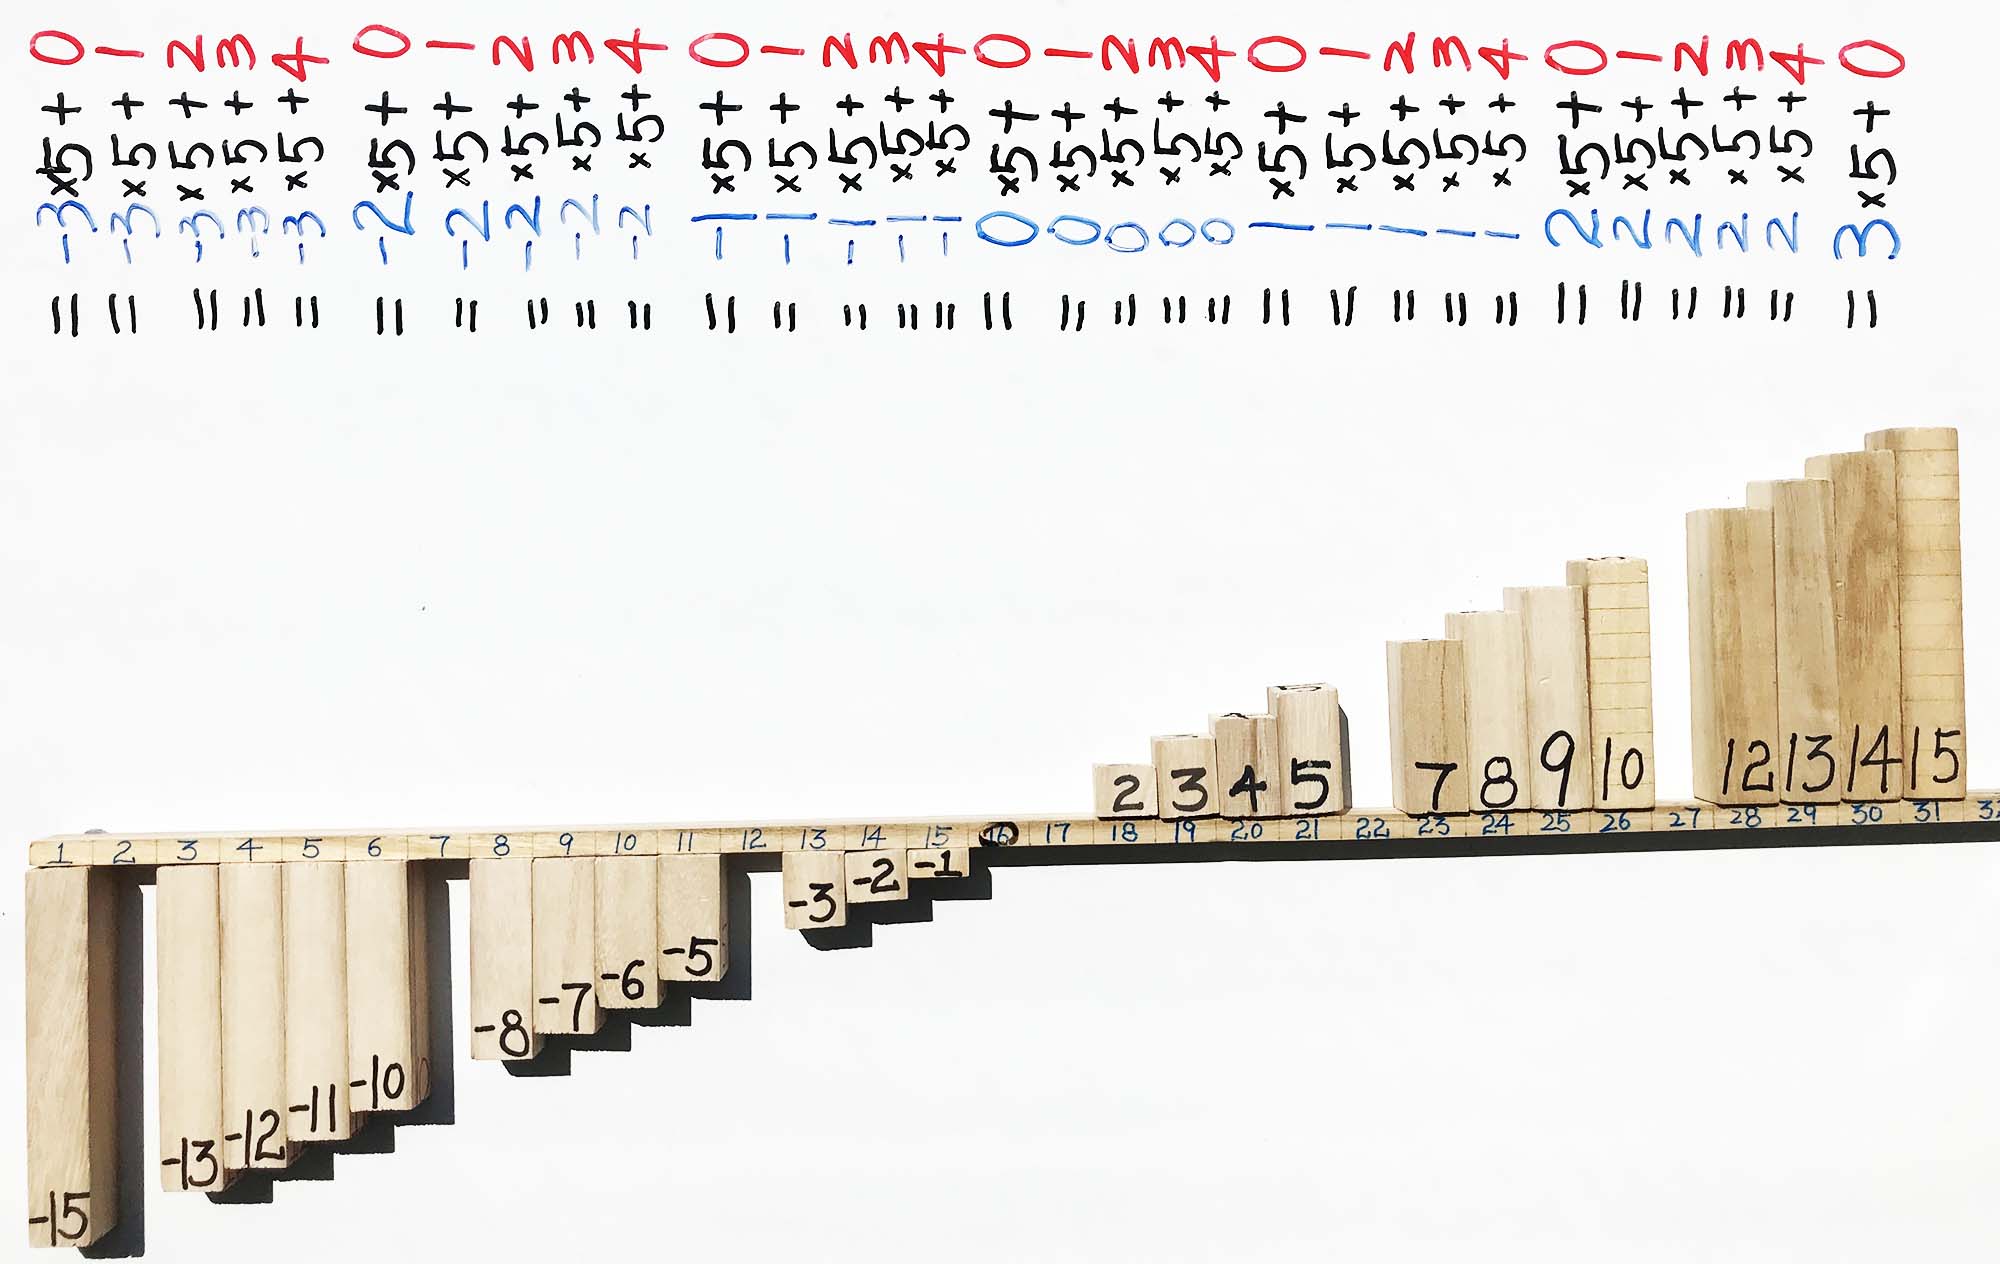 = -3×5+0
= -3×5+1
= -3×5+2
= -3×5+3
= -3×5+4
= -2×5+0
= -2×5+1
= -2×5+2
= -2×5+3
= -2×5+4
= -1×5+0
= -1×5+1
= -1×5+2
= -1×5+3
= -1×5+4
= 0×5+0
= 0×5+1
= 0×5+2
= 0×5+3
= 0×5+4
= 1×5+0
= 1×5+1
= 1×5+2
= 1×5+3
= 1×5+4
= 2×5+0
= 2×5+1
= 2×5+2
= 2×5+3
= 2×5+4
= 3×5+0
5
2 3 4 5 7 8 9 10 12 13 14 15
1 2 3 4 5 6 7 8 9 10 11 12 13 14 15 16 17 18 19 20 21 22 23 24 25 26 27 28 29 30 31 32
-15 -13 -12 -11 -10 -8 -7 -6 -5 -3 -2 -1